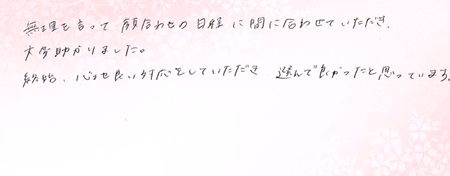 無理を言って 顔合わせの日程に間に合わせていただき、
大変助かりました。
終始、心地良い対応をしていただき 選んで良かったと思っています。